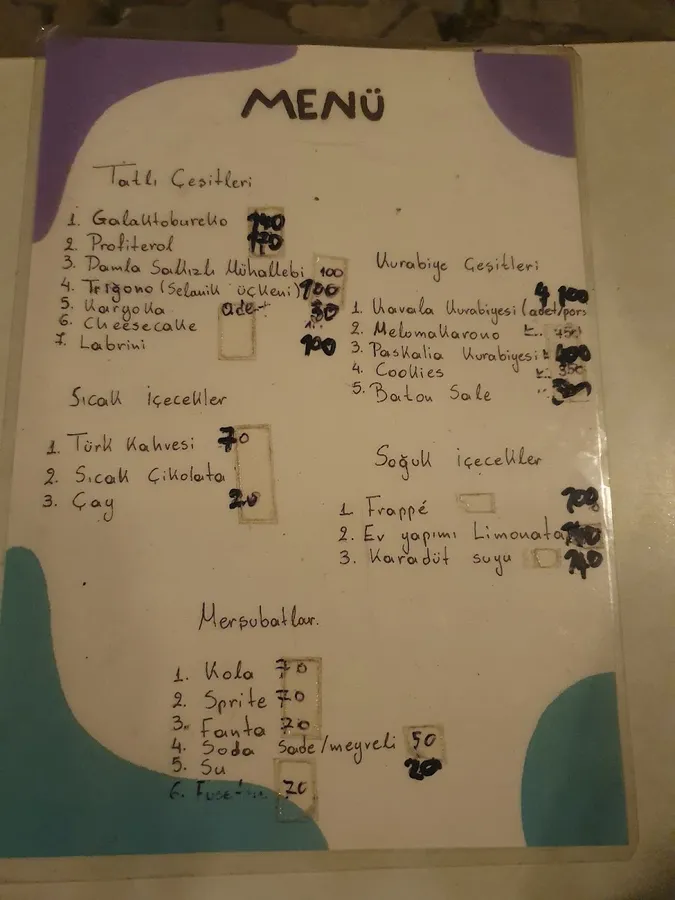 MENÜ
Tatlı Çeşitleri
1. Galaktobureko 140
2. Profiterol 170
3. Damla Sakızlı Mühallebi 100
4. Trigono (Selanik üçkeni) 100
5. Karyoka adet 30
6. Cheesecake
7. Labrini 100
Kurabiye Çeşitleri
1. Kavala Kurabiyesi (adet/pors
2. Melomakarono 450
3. Paskalia Kurabiyesi
4. Cookies 350
5. Baton Sale
Sıcak İçecekler
1. Türk Kahvesi 70
2. Sıcak Çikolata
3. Çay 20
Soğuk İçecekler
1. Frappé
2. Ev yapımı Limonata
3. Karadut suyu 140
Merşubatlar.
1. Kola 70
2. Sprite 70
3. Fanta 70
4. Soda sade/meyveli 50
5. Su 20
6. 70